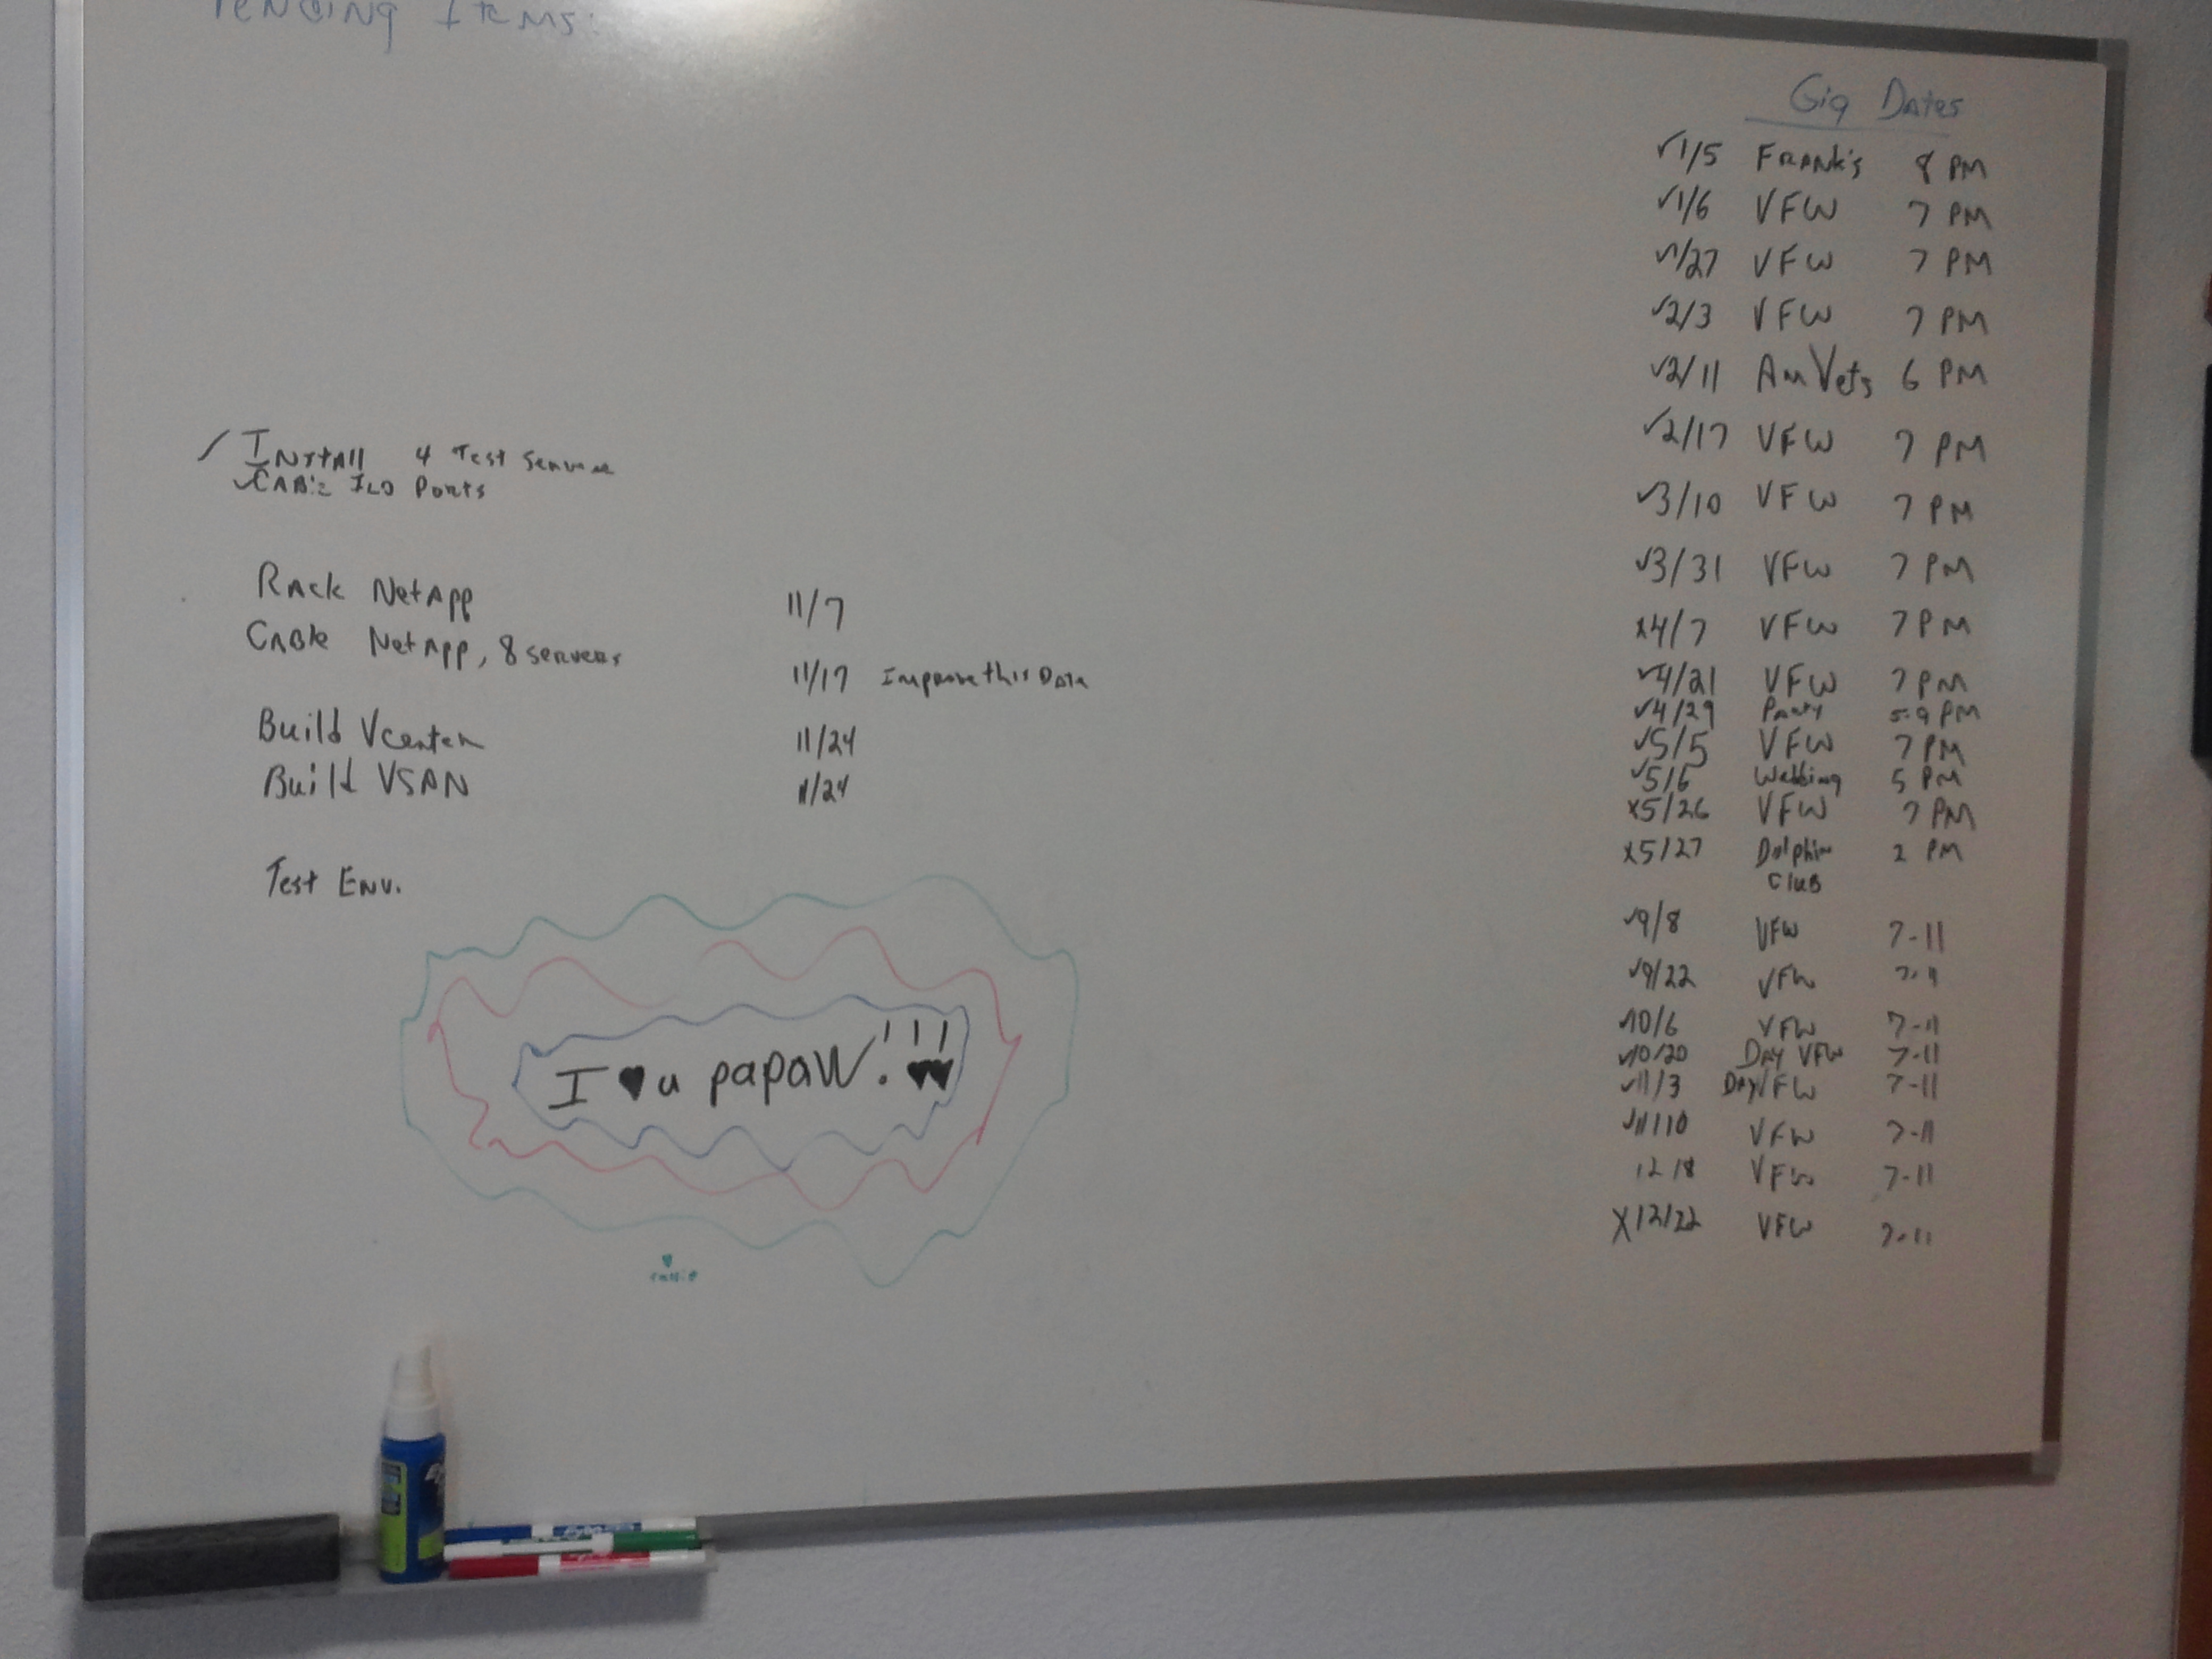 Pending Items:
Gig Dates
✓1/5 Frank's 8 PM
✓1/6 VFW 7 PM
✓1/27 VFW 7 PM
✓2/3 VFW 7 PM
✓2/11 AmVets 6 PM
✓2/17 VFW 7 PM
✓3/10 VFW 7 PM
✓3/31 VFW 7 PM
x4/7 VFW 7 PM
✓4/21 VFW 7 PM
✓4/29 Party 5-9 PM
✓5/5 VFW 7 PM
✓5/6 Wedding 5 PM
x5/26 VFW 7 PM
x5/27 Dolphin 2 PM
Club
✓9/8 VFW 7-11
✓9/22 VFW 7-11
✓10/6 VFW 7-11
✓10/20 Day VFW 7-11
✓11/3 Day VFW 7-11
✓11/10 VFW 7-11
12/8 VFW 7-11
X12/22 VFW 7-11
✓ Install 4 Test
✓Cable ILO Ports
Rack NetApp 11/7
Cable NetApp, 8 servers
11/17 Improve this Date
Build Vcenter 11/24
Build VSAN 11/24
Test Env.
I ♥ u papaw!!!! ♥♥
♥